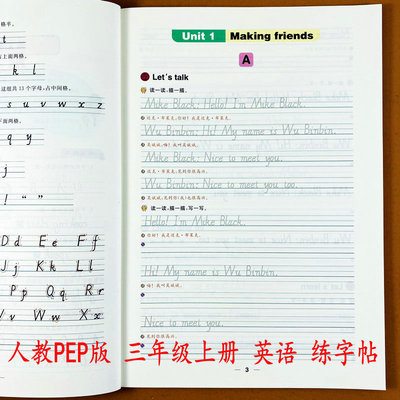 t
k l
这组共13个字母,占中间格。
s u v w x z
l " "
D d E e F f
J j K k L l
P p Q q R r
W w X x
Unit 1 Making friends
A
Let's talk
读一读,描一描。
Mike Black: Hello! I'm Mike Black.
Wu Binbin: Hi! My name is Wu Binbin.
吴斌斌:嗨!我叫吴斌斌。
Mike Black: Nice to meet you.
Wu Binbin: Nice to meet you too.
读一读,描一描,写一写。
Hello! I'm Mike Black.
Hi! My name is Wu Binbin.
嗨!我叫吴斌斌。
Nice to meet you.
见到你很高兴。
人教PEP版 三年级上册 英语 练字帖
3